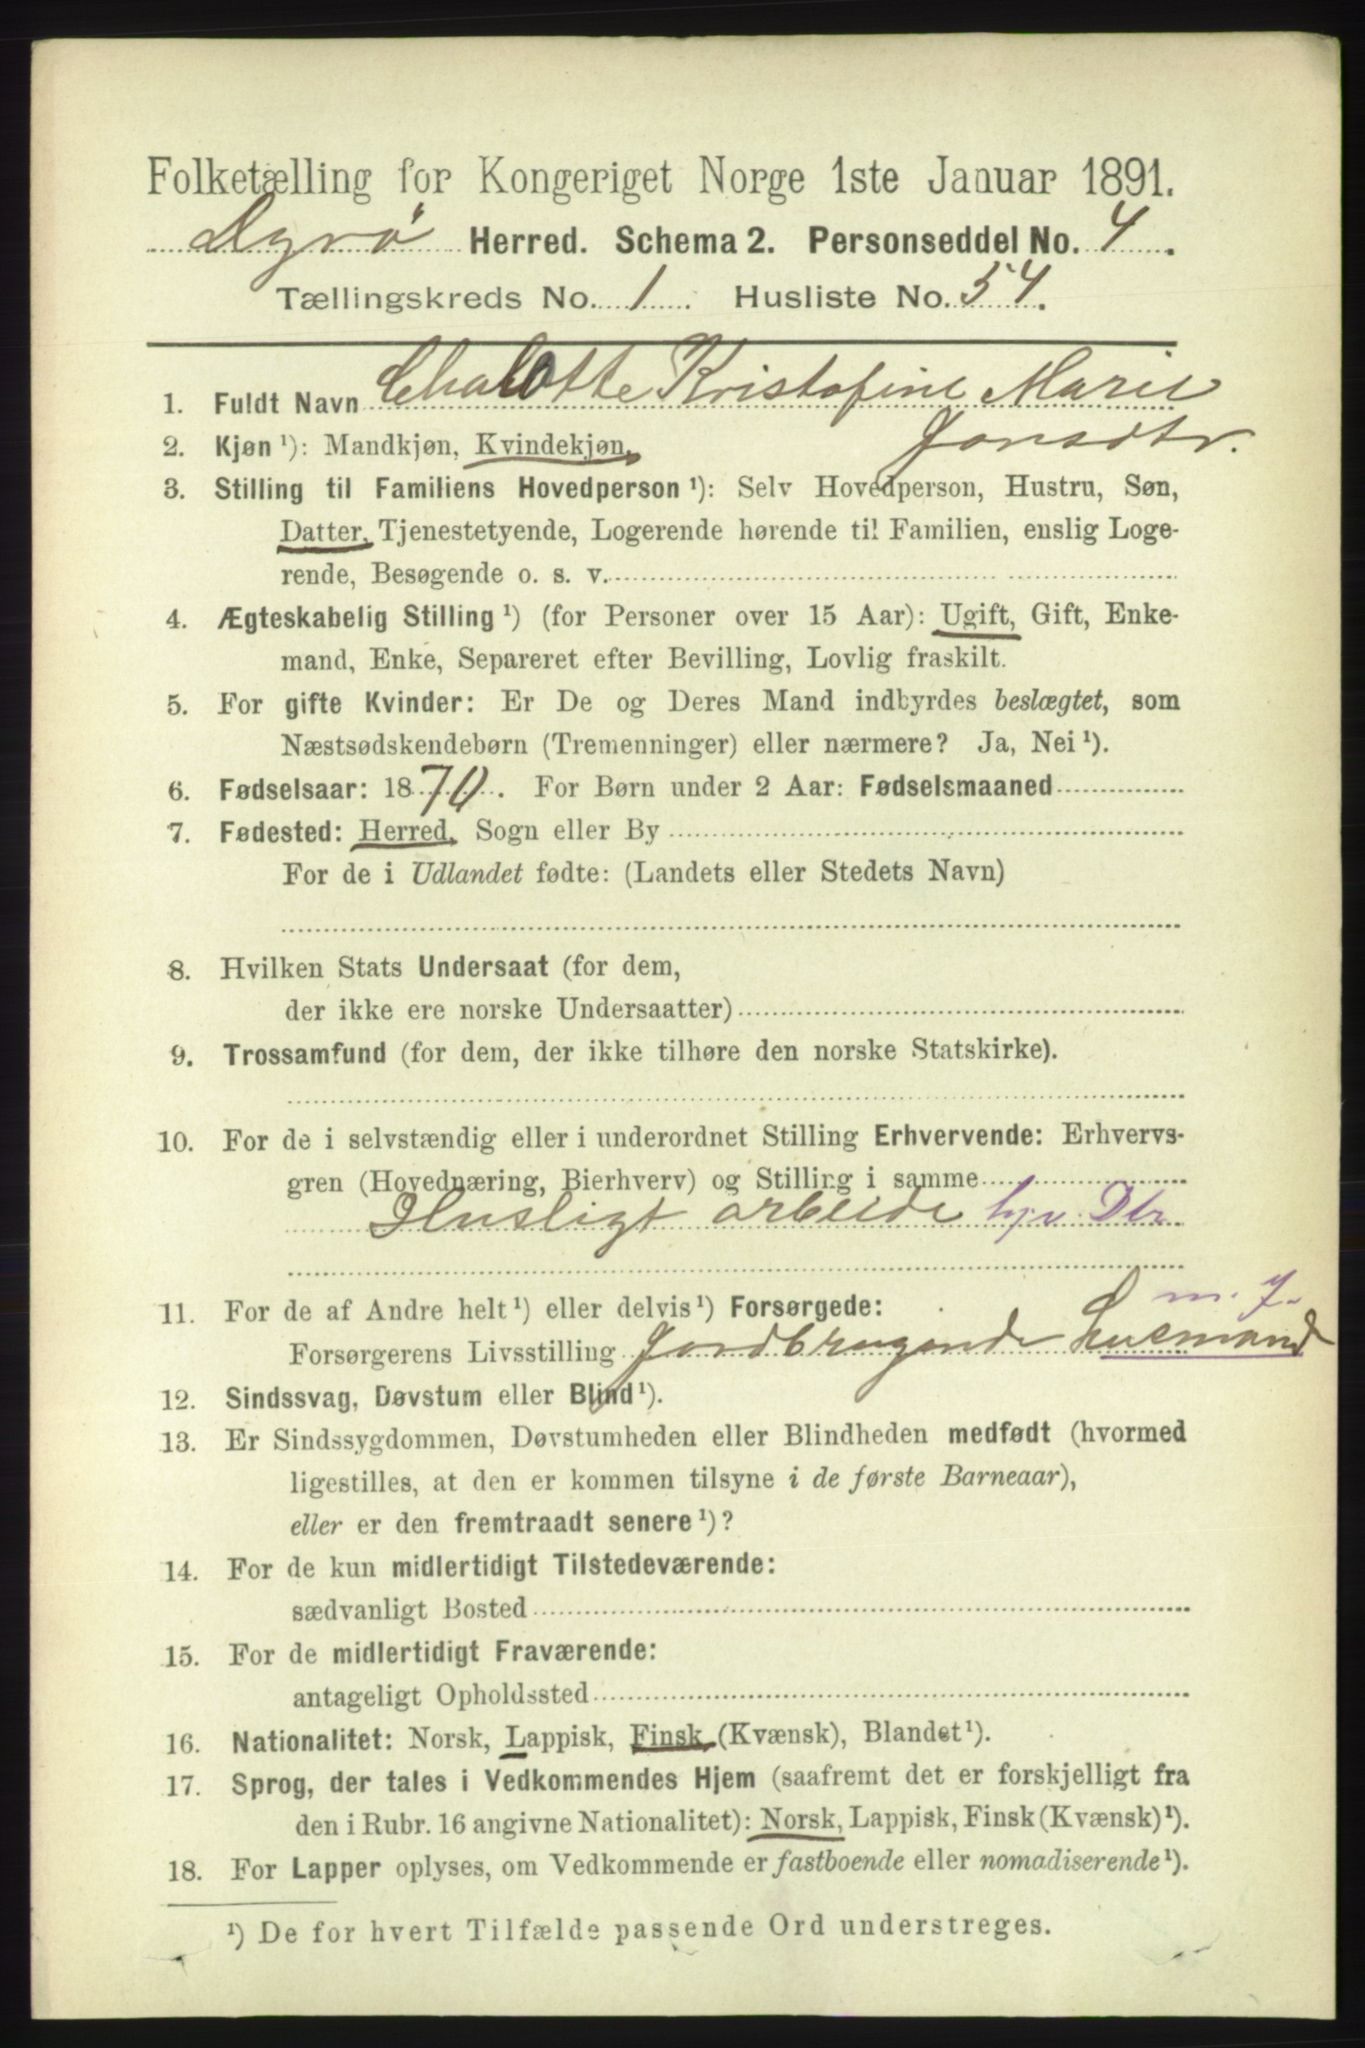 Folketælling for Kongeriget Norge 1ste Januar 1891.
Dyrö Herred. Schema 2. Personseddel No. 4.
Tællingskreds No. 1. Husliste No. 54.
1. Fuldt Navn Chalotte Kristofine Marie
Jonsdtr.
2. Kjøn ¹): Mandkjøn, Kvindekjøn.
3. Stilling til Familiens Hovedperson ¹): Selv Hovedperson, Hustru, Søn,
Datter, Tjenestetyende, Logerende hørende til Familien, enslig Loge-
rende, Besøgende o. s. v.
4. Ægteskabelig Stilling ¹) (for Personer over 15 Aar): Ugift, Gift, Enke-
mand, Enke, Separeret efter Bevilling, Lovlig fraskilt.
5. For gifte Kvinder: Er De og Deres Mand indbyrdes beslægtet, som
Næstsødskendebørn (Tremenninger) eller nærmere? Ja, Nei ¹).
6. Fødselsaar: 1870. For Børn under 2 Aar: Fødselsmaaned
7. Fødested: Herred, Sogn eller By
For de i Udlandet fødte: (Landets eller Stedets Navn)
8. Hvilken Stats Undersaat (for dem,
der ikke ere norske Undersaatter)
9. Trossamfund (for dem, der ikke tilhøre den norske Statskirke).
10. For de i selvstændig eller i underordnet Stilling Erhvervende: Erhvervs-
gren (Hovednæring, Bierhverv) og Stilling i samme
Husligt arbeide hjv. Dtr
11. For de af Andre helt ¹) eller delvis ¹) Forsørgede:
m. J.
Forsørgerens Livsstilling Jordbrugende husmand
12. Sindssvag, Døvstum eller Blind ¹).
13. Er Sindssygdommen, Døvstumheden eller Blindheden medfødt (hvormed
ligestilles, at den er kommen tilsyne i de første Barneaar),
eller er den fremtraadt senere ¹)?
14. For de kun midlertidigt Tilstedeværende:
sædvanligt Bosted
15. For de midlertidigt Fraværende:
antageligt Opholdssted
16. Nationalitet: Norsk, Lappisk, Finsk (Kvænsk), Blandet ¹).
17. Sprog, der tales i Vedkommendes Hjem (saafremt det er forskjelligt fra
den i Rubr. 16 angivne Nationalitet): Norsk, Lappisk, Finsk (Kvænsk) ¹).
18. For Lapper oplyses, om Vedkommende er fastboende eller nomadiserende ¹).
¹) De for hvert Tilfælde passende Ord understreges.